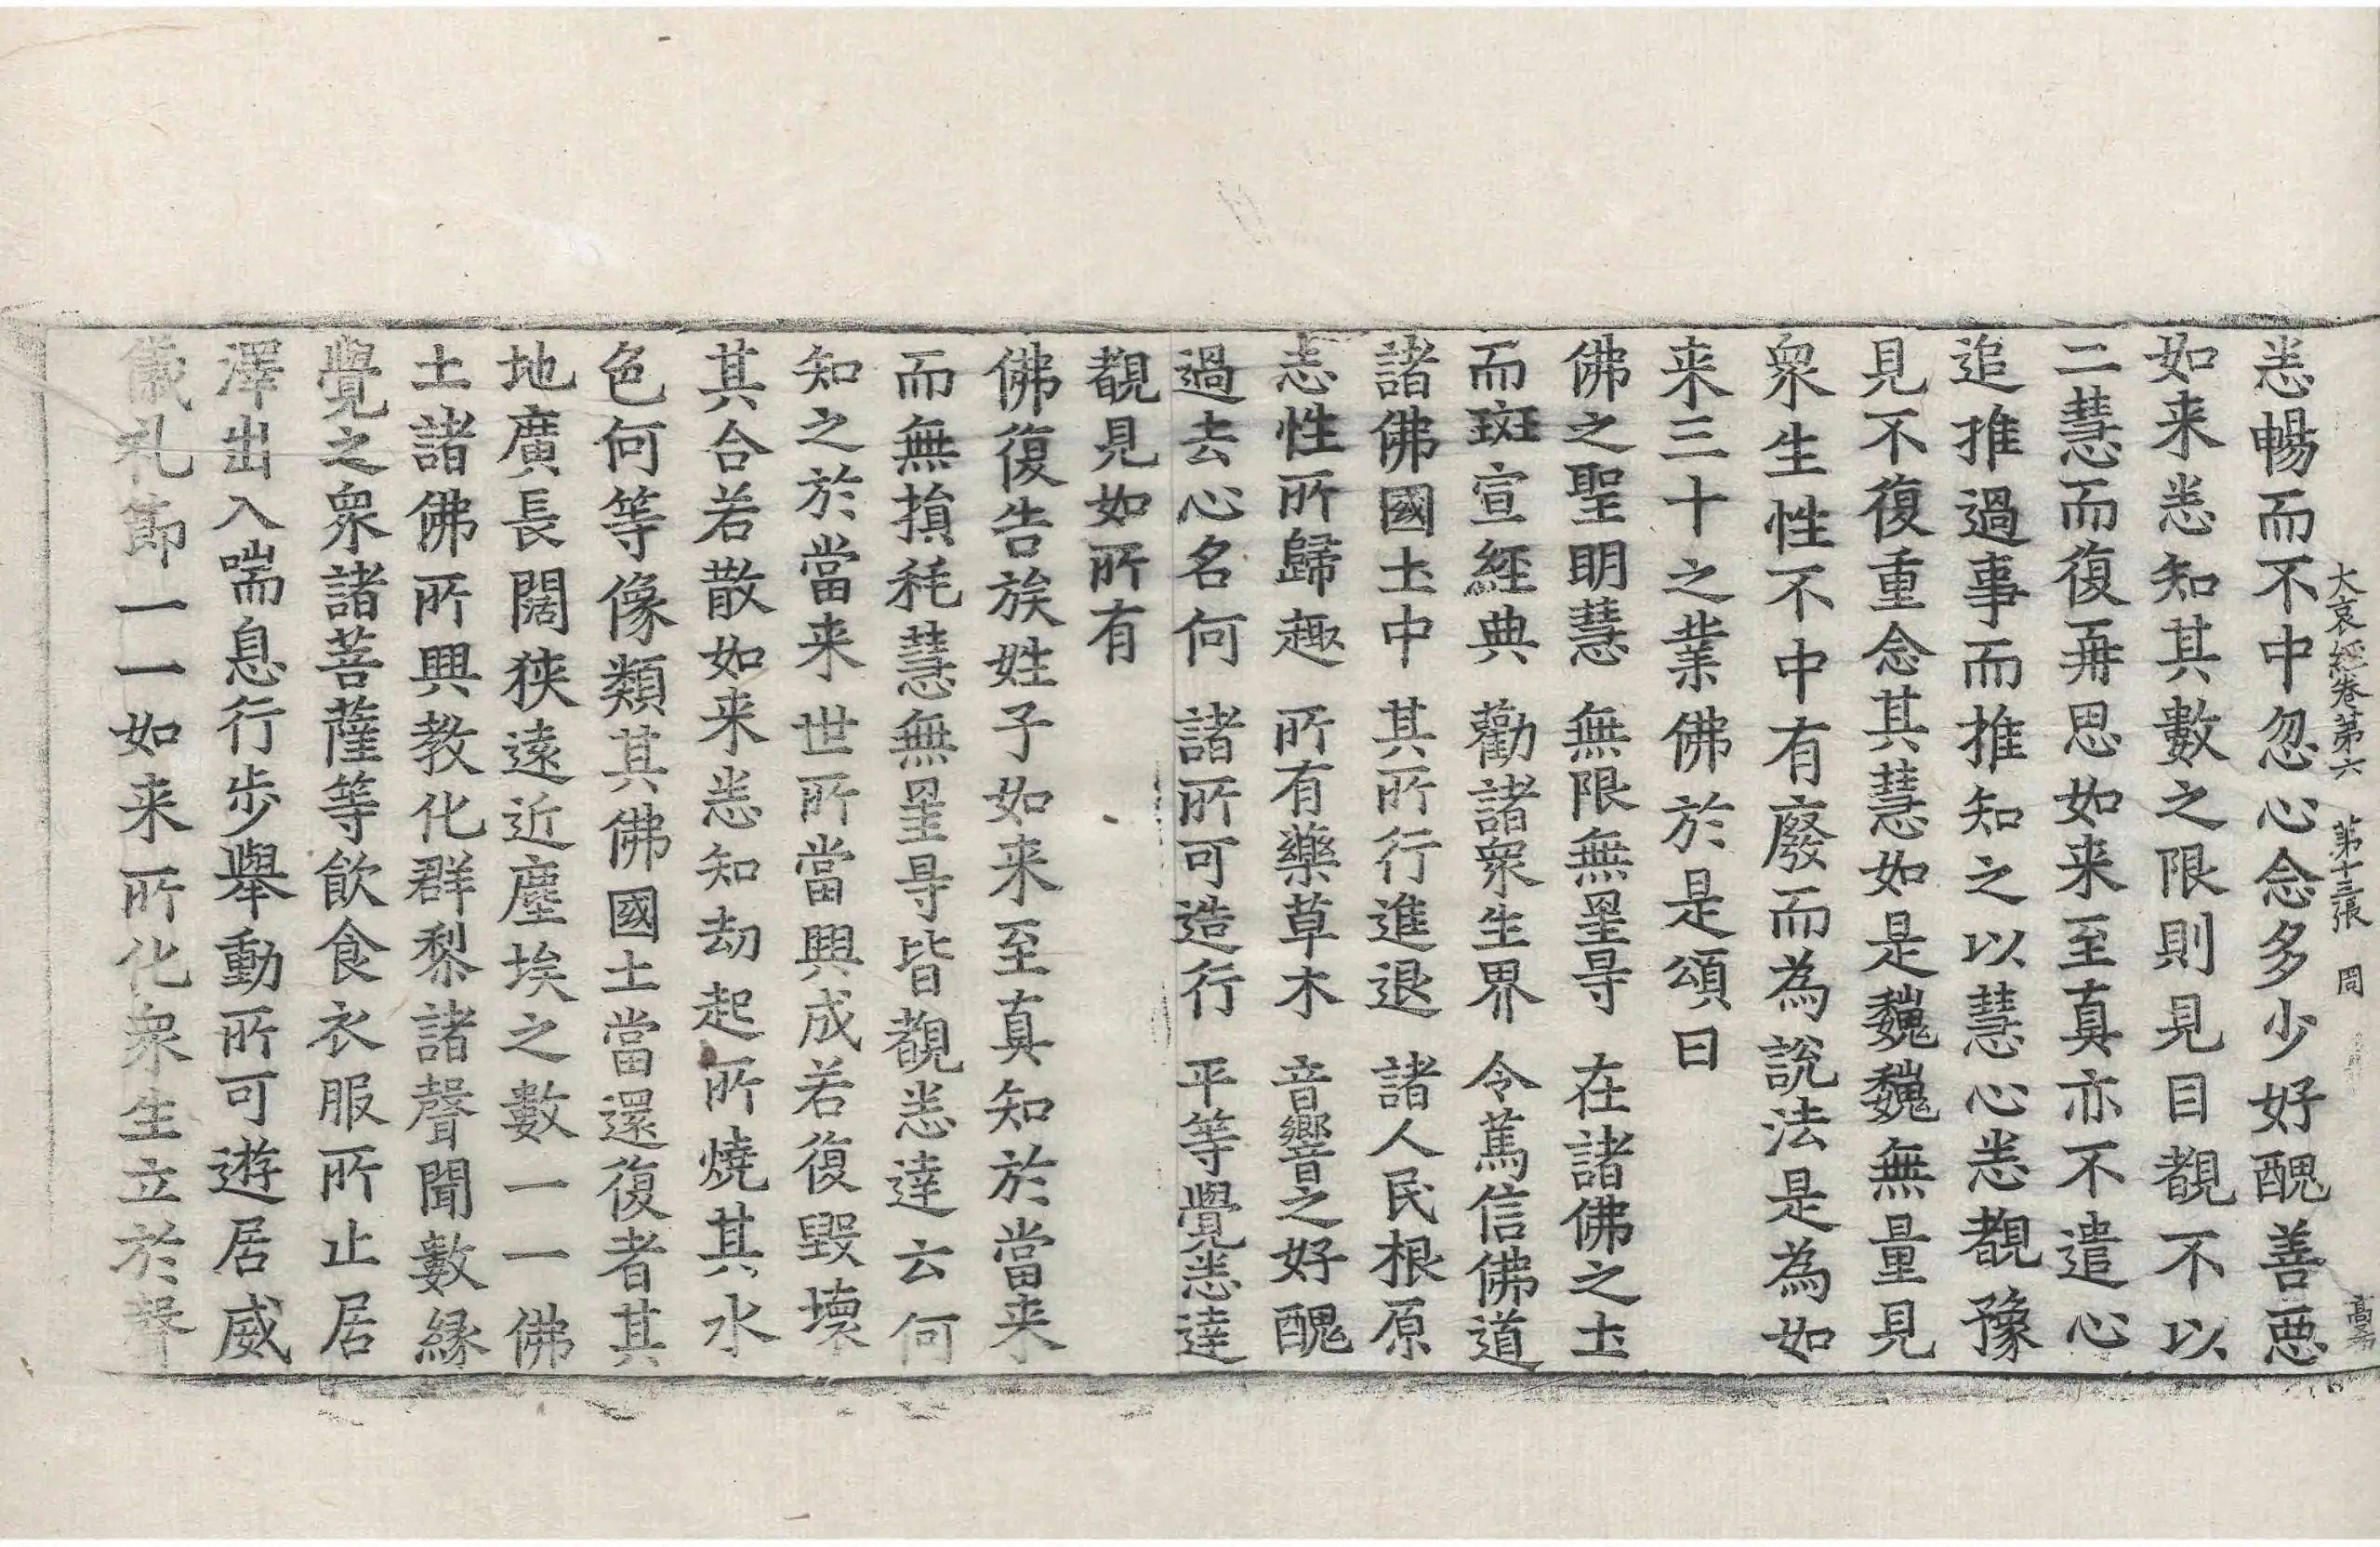 大哀經卷第六　第十三張　周
悉暢而不中忽心念多少好醜善惡
如来悉知其數之限則見目覩不以
二慧而復再思如来至真亦不遣心
追推過事而推知之以慧心悉覩豫
見不復重念其慧如是巍巍無量見
衆生性不中有廢而為說法是為如
来三十之業佛於是頌曰
佛之聖明慧　無限無罣㝵　在諸佛之土
而班宣經典　勸諸衆生界　令篤信佛道
諸佛國土中　其所行進退　諸人民根原
志性所歸趣　所有藥草木　音響之好醜
過去心名何　諸所可造行　平等覺悉達
覩見如所有
佛復告族姓子如来至真知於當来
而無損耗慧無罣㝵皆覩悉達云何
知之於當来世所當興成若復毀壞
其合若散如来悉知劫起所燒其水
色何等像類其佛國土當還復者其
地廣長闊狹遠近塵埃之數一一佛
土諸佛所興教化群黎諸聲聞數緣
覺之衆諸菩薩等飲食衣服所止居
澤出入喘息行步舉動所可遊居威
儀礼節一一如来所化衆生立於聲